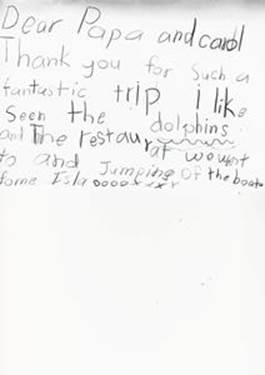 Dear Papa and carol
Thank you for Such a
fantastic trip i like
Seen the dolphins
and The restaurat we went
to and Jumping Of the boat
fome Isla oooo xxxx